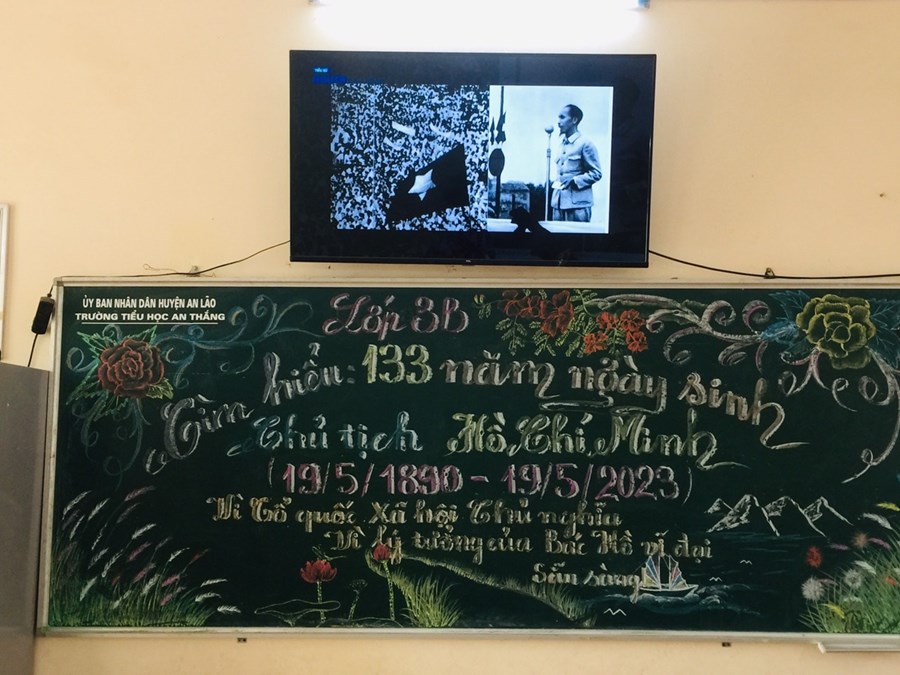 ỦY BAN NHÂN DÂN HUYỆN AN LÃO
TRƯỜNG TIỂU HỌC AN THẮNG
Lớp 3B
Tìm hiểu: 133 năm ngày sinh
Chủ tịch Hồ Chí Minh
(19/5/1890 - 19/5/2023)
Vì Tổ quốc Xã hội Chủ nghĩa
Vì lý tưởng của Bác Hồ vĩ đại
Sẵn sàng